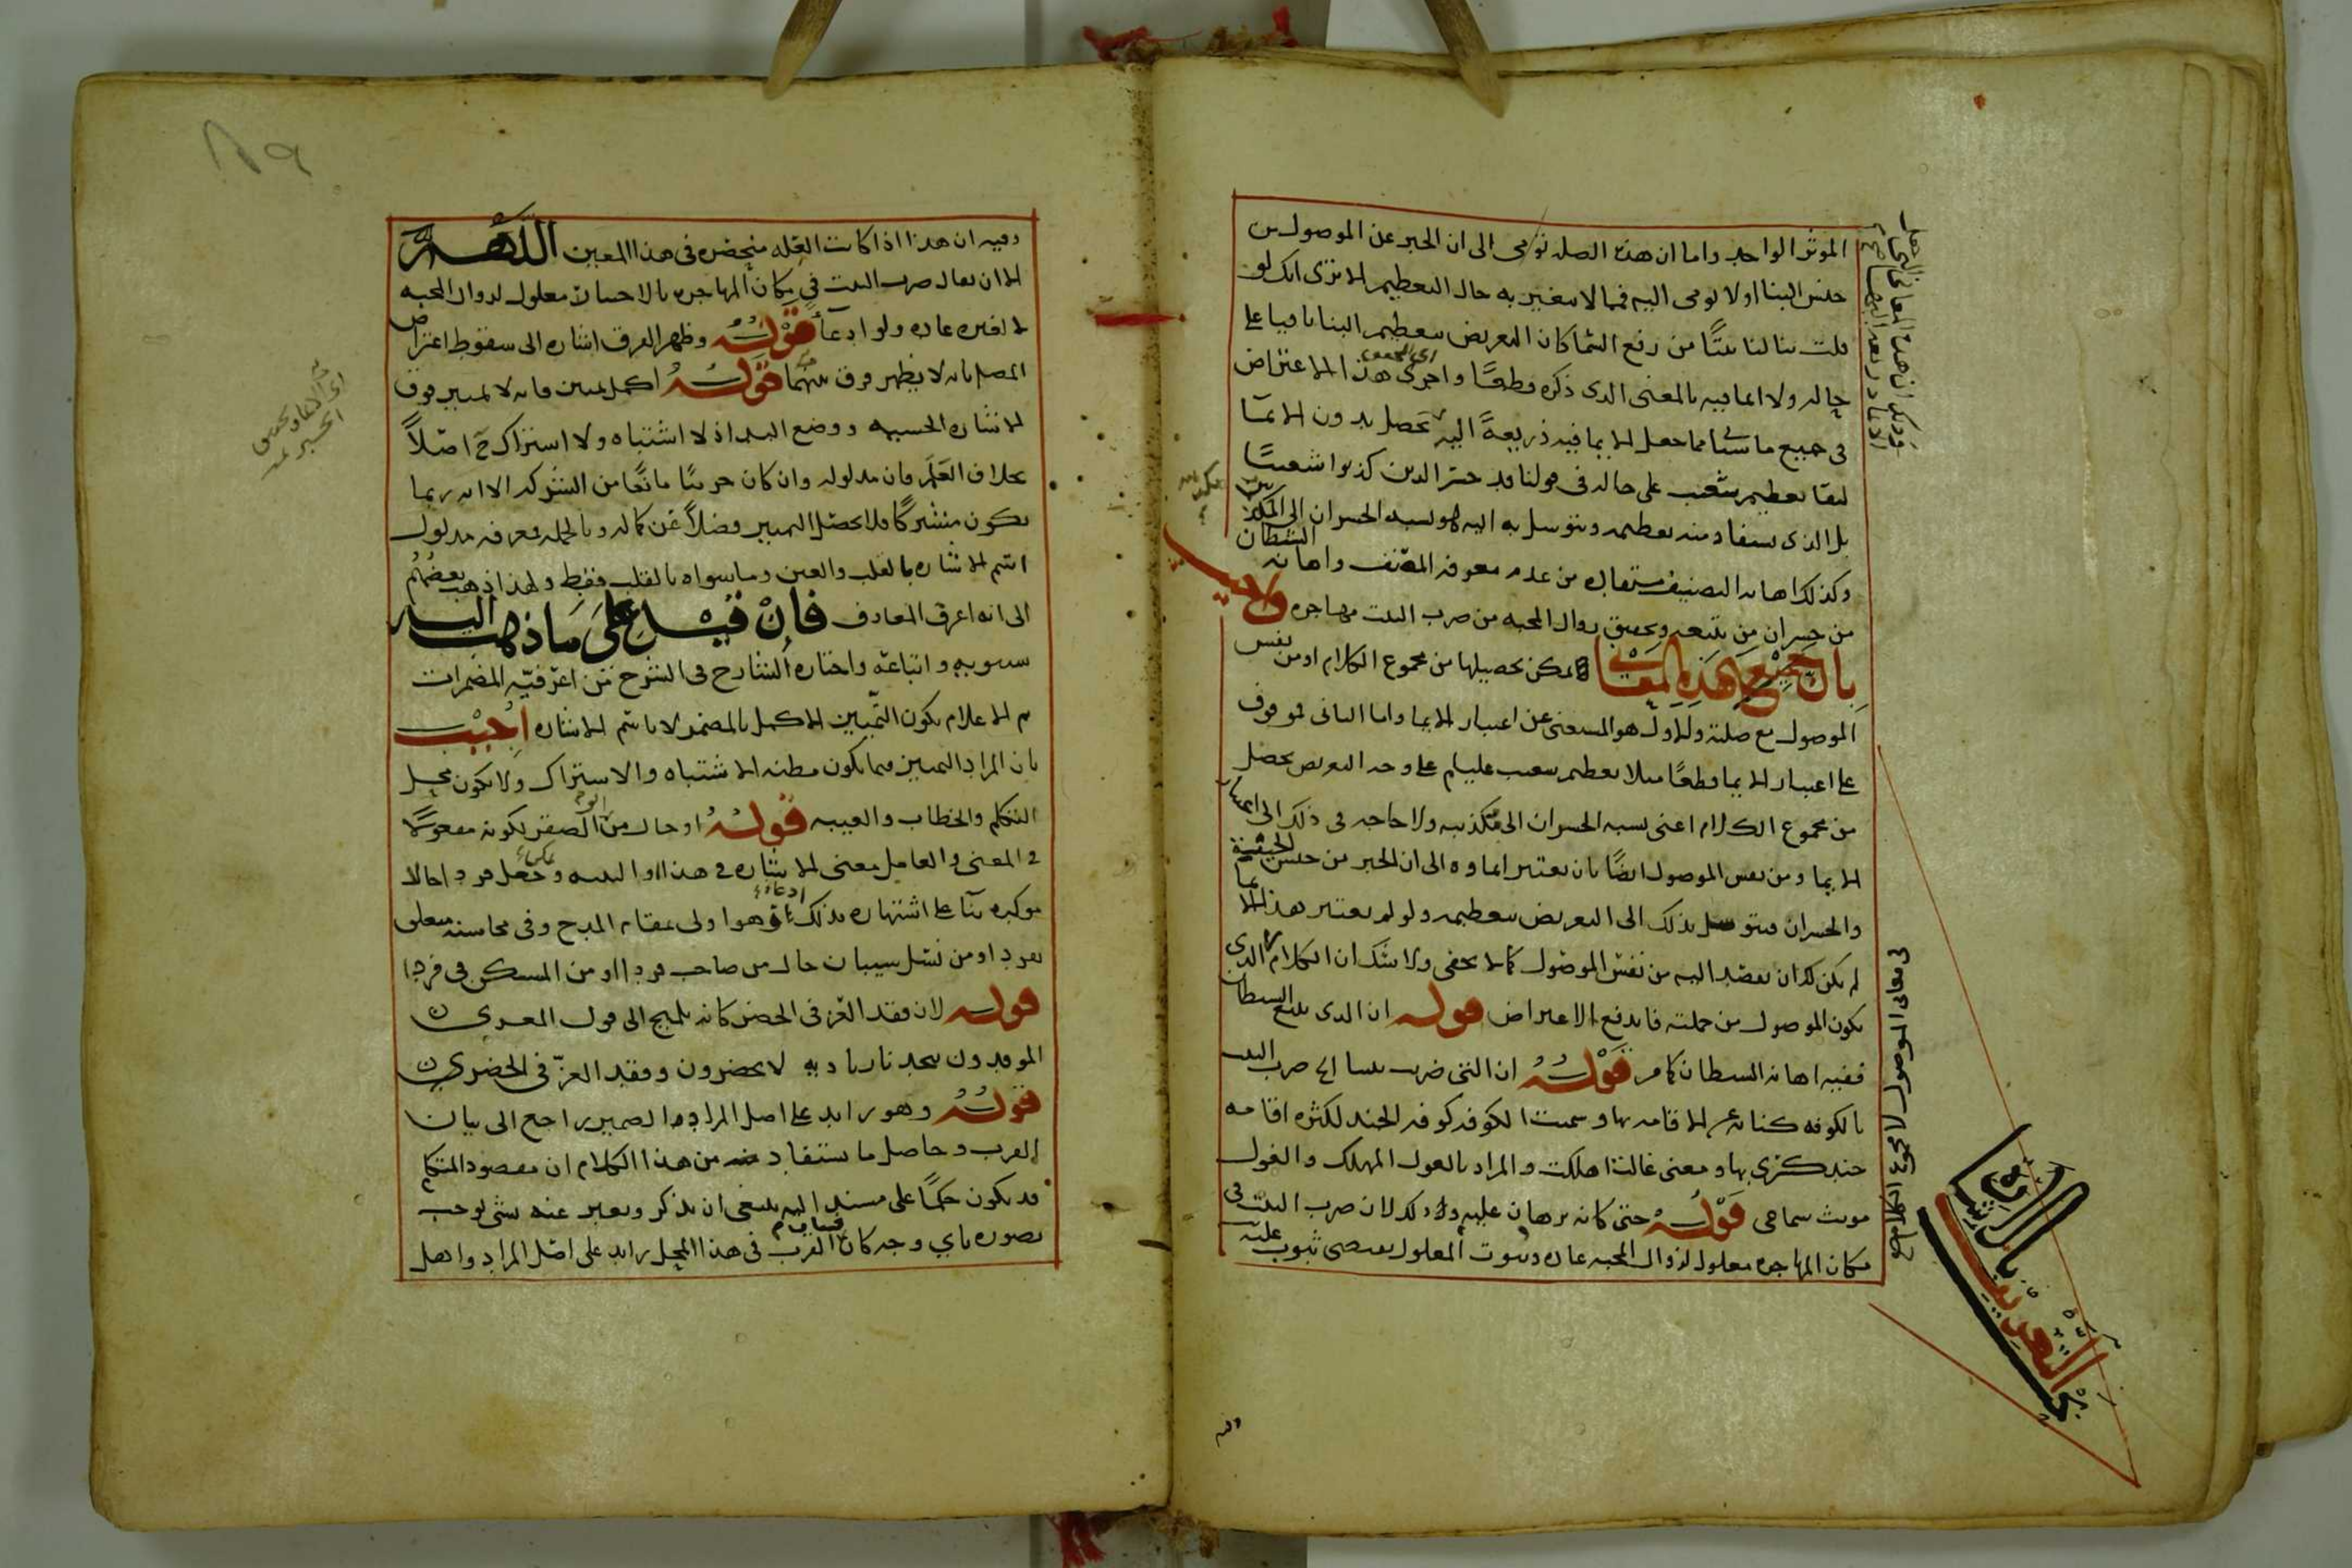 الموثر الواحد واما ان هذه الصله تومى الى ان الخبر عن الموصول من
جنس البنا اولا تومى اليه فمما لا يتغير به حال التعظيم الا ترى انك لو
قلت بنا لنا بيتا من رفع السما كان التعريض بتعظيم البنا باقيا على
حاله ولا ايما فيه بالمعنى الذى ذكره قطعا واجرى هذا الاعتراض
فى جميع ما سيأتى مما جعل الايما فيه ذريعة اليه تحصل بدون الايما
لبقا تعظيم شعيب على حاله فى قولنا قد خسر الذين كذبوا شعيبا
بل الذى يستفاد منه تعظيمه ويتوسل به اليه هو نسبه الخسران الى المكذبين
وكذلك اهانه التصنيف مستفاده من عدم معرفه المصنف واهانه الشيطان
من خسران من يتبعه وتحقيق زوال المحبه من ضرب البيت مهاجره واجيب
بان جميع هذه المعانى يمكن تحصيلها من مجموع الكلام او من نفس
الموصول مع صلته والاول هو المستغنى عن اعتبار الايما واما الثانى فموقوف
على اعتبار الايما قطعا مثلا تعظيم شعيب عليلم على وجه التعريض يحصل
من مجموع الكلام اعنى نسبه الخسران الى مكذبيه ولا حاجه فى ذلك الى اعتبار
الايما ومن نفس الموصول ايضا بان يعتبر ايماوه الى ان الخبر من جنس الخيبة
والخسران فيتوسل بذلك الى التعريض بتعظيمه ولو لم يعتبر هذا الايما
لم يكن لك ان تقصد اليه من نفس الموصول كما لا يخفى ولا شك ان الكلام الذى
يكون الموصول من جملته فاندفع الاعتراض قوله ان الذى يتبع الشيطان
ففيه اهانه الشيطان كما مر قوله ان التى ضربت بيتا الخ ضرب البيت
بالكوفه كنايه عن الاقامه بها وسميت الكوفه كوفه الجند لكثره اقامه
جند كسرى بها ومعنى غالت اهلكت والمراد بالغول المهلك والغول
مونث سماعى قوله حتى كانه برهان عليه وذلك لان ضرب البيت فى
مكان المهاجره معلول لزوال المحبه عاده وثبوت المعلول يقتضى ثبوت علته
فى معانى الموصول لا مجموع الكلام
وفيه ان هذا اذا كانت العله منحصره فى هذا المعين اللهم
الا ان يقال ضرب البيت فى مكان المهاجره بالاختيار معلول لزوال المحبه
لا لغيره عاده ولو ادعا قوله وظهر الفرق اشاره الى سقوط اعتراض
المصنف بانه لا يظهر فرق بينهما قوله اكمل تمييز فانه لا تمييز فوق
الاشاره الحسيه ووضع اليد اذ لا اشتباه ولا اشتراك ح اصلا
بخلاف العلم فان مدلوله وان كان جزئيا مانعا من الشركه الا انه ربما
يكون مشتركا فلا يحصل التمييز فضلا عن كماله وبالجمله معرفه مدلول
اسم الاشاره بالقلب والعين وما سواه بالقلب فقط ولهذا ذهب بعضهم
الى انه اعرف المعارف فان قيل على ما ذهب اليه
سيبويه واتباعه واختاره الشارح فى الشرح من اعرفيه المضمرات
ثم الاعلام يكون التمييز الاكمل بالمضمر لا باسم الاشاره اجيب
بان المراد التمييز فيما يكون مظنه الاشتباه والاشتراك ولا يكون محل
التكلم والخطاب والغيبه قوله او حال من الصقر لكونه مفعولا
فى المعنى والعامل معنى الاشاره فى هذا او التنبيه وجعل فردا حالا
موكده بنآ على اشتهاره بذلك هو اولى بمقام المدح وفى محاسنه متعلق
بفردا ومن نسل شيبان حال من صاحب فردا او من المستكن فى فردا
قوله لان فقد العز فى الحضر كانه تلميح الى قول المعرى
الموقدون بنجد نار باديه لا يحضرون وفقد العز فى الحضر
قوله وهو زايد على اصل المراد الضمير راجع الى بيان
القرب وحاصل ما يستفاد من هذا الكلام ان مقصود المتكلم
قد يكون حكما على مسند اليه ينبغى ان يذكر ويعبر عنه بشى يوجب
تصوره باى وجه كان فبيان القرب فى هذا المحل زايد على اصل المراد واهل